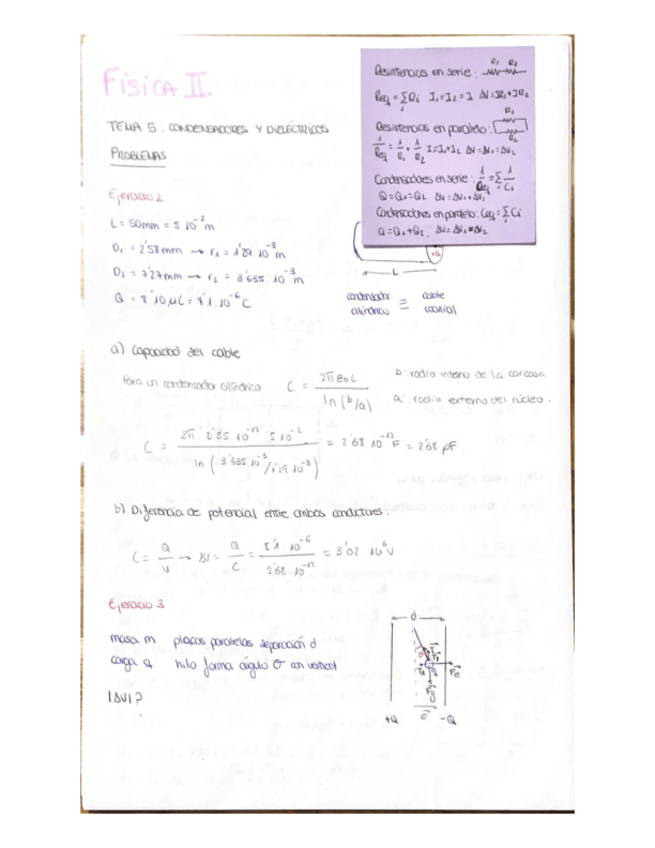 Física II.
TEMA 5: CONDENSADORES Y DIELÉCTRICOS
PROBLEMAS
Resistencias en serie: R₁ R₂
Req = Σ Ri I₁=I₂=I ΔV=IR₁+IR₂
i
Resistencias en paralelo: R₁
R₂
1/Req = 1/R₁ + 1/R₂ I=I₁+I₂ ΔV=ΔV₁=ΔV₂
Condensadores en serie: 1/Ceq = Σ 1/Ci
Q=Q₁=Q₂ ΔV=ΔV₁+ΔV₂
Condensadores en paralelo: Ceq = Σ Ci
Q=Q₁+Q₂; ΔV=ΔV₁=ΔV₂
Ejercicio 2
L = 50mm = 5 10⁻² m
D₁ = 2'58mm → r₁ = 1'29.10⁻³ m
D₂ = 7'27mm → r₂ = 3'635.10⁻³ m
Q = 8'10 μC = 8'1.10⁻⁶ C
L
condensador cilíndrico ≡ cable coaxial
a) Capacidad del cable
Para un condensador cilíndrico C = 2πε₀L / ln(b/a)
b: radio interno de la carcasa
a: radio externo del núcleo.
C = 2π. 8'85 10⁻¹² 5 10⁻² / ln(3'635 10⁻³/1'29 10⁻³) = 2'68 10⁻¹² F = 2'68 pF
b) Diferencia de potencial entre ambos conductores.
C = Q/V → ΔV = Q/C = 8'1 . 10⁻⁶ / 2'68 10⁻¹² = 3'02 10⁶ V
Ejercicio 3
masa m placas paralelas separación d
carga q hilo forma ángulo θ con vertical
|ΔV|?
d
Fe
E
+Q -Q